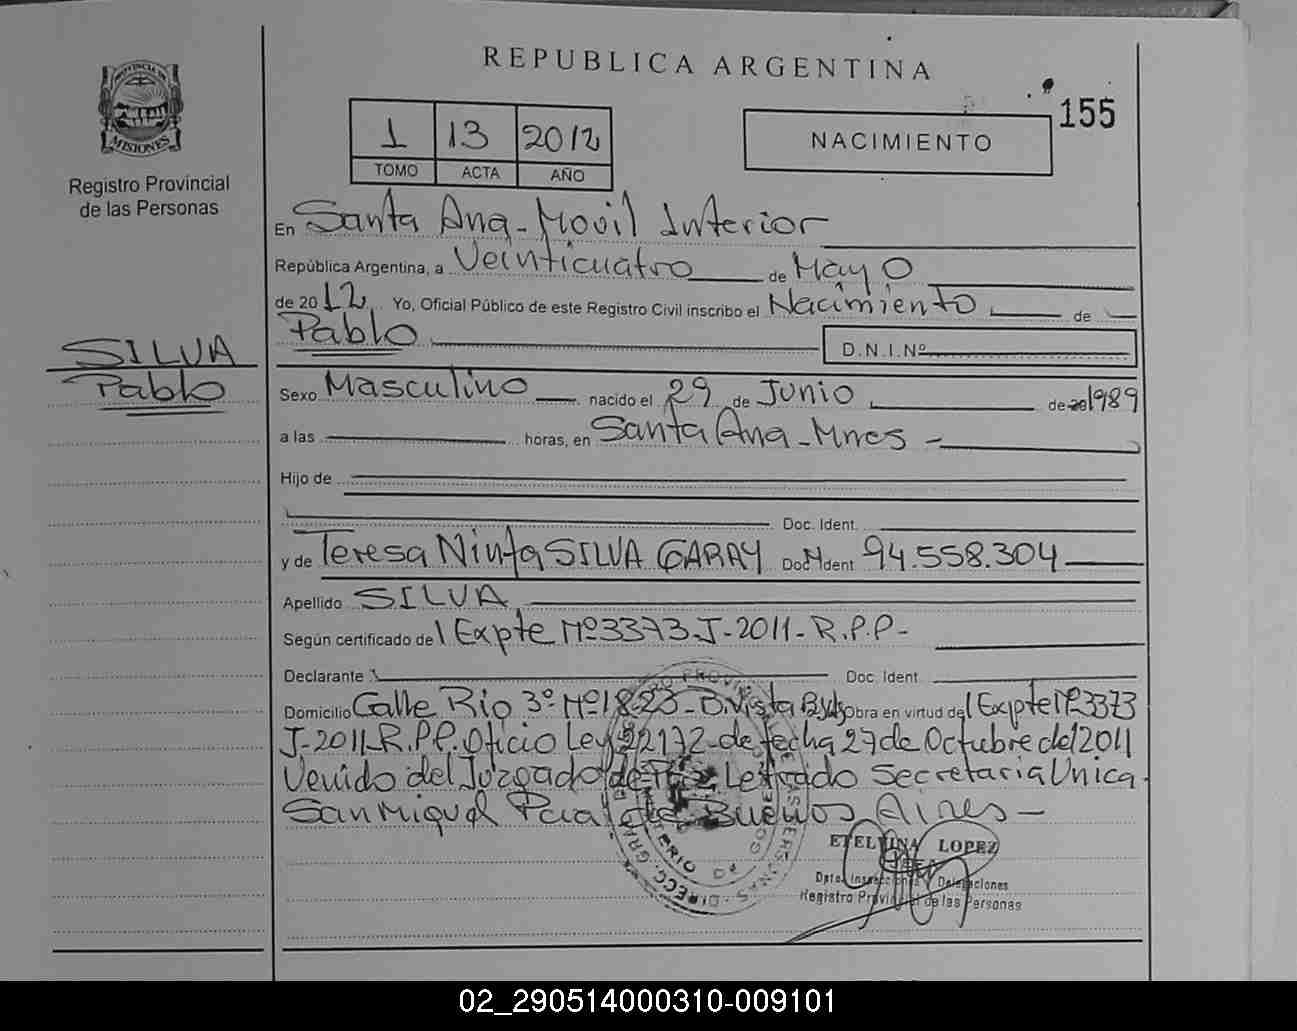 REPUBLICA ARGENTINA
155
PROVINCIA DE
MISIONES
Registro Provincial
de las Personas
1 13 2012
TOMO ACTA AÑO
NACIMIENTO
En Santa Ana - Movil Interior
República Argentina, a Veinticuatro de Mayo
de 2012 Yo, Oficial Público de este Registro Civil inscribo el Nacimiento de
Pablo D.N.I.Nº
SILVA
Pablo
Sexo Masculino nacido el 29 de Junio de 20 1989
a las horas, en Santa Ana - Mnes -
Hijo de
Doc. Ident.
y de Teresa Ninfa SILVA GARAY Doc. Ident 94.558.304
Apellido SILVA
Según certificado de l Expte Nº 3373-J-2011- R.P.P-
Declarante Doc. Ident
Domicilio Calle Rio 3º Nº 1823 - Obra en virtud del Expte Nº 3373
J-2011 R.P.P. Oficio Ley 22172 - de fecha 27 de Octubre del 2011
Venido del Juzgado de Paz Letrado Secretaria Unica
San Miguel Pcia de Buenos Aires -
ETELVINA LOPEZ
Dpto. Inspecciones Delegaciones
Registro Provincial de las Personas
02_290514000310-009101